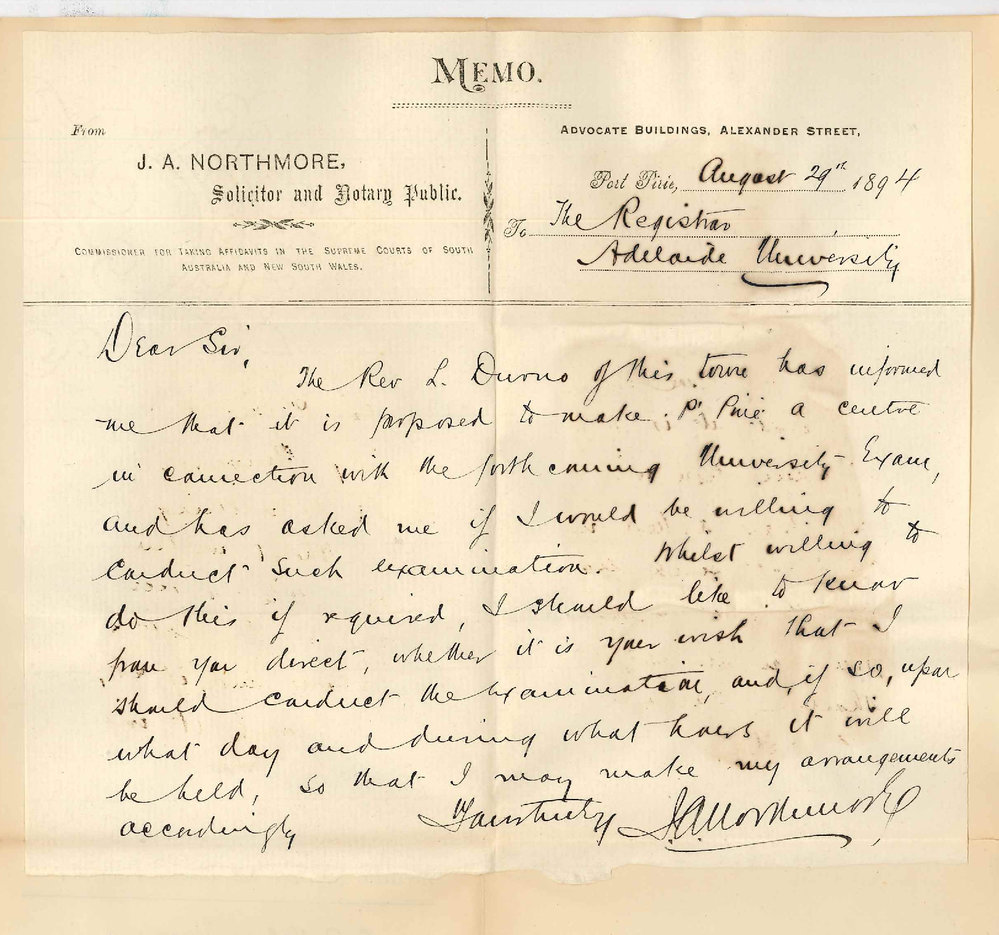 MEMO.
From
J. A. NORTHMORE,
Solicitor and Notary Public.
COMMISSIONER FOR TAKING AFFIDAVITS IN THE SUPREME COURTS OF SOUTH
AUSTRALIA AND NEW SOUTH WALES.
ADVOCATE BUILDINGS, ALEXANDER STREET,
Port Pirie, August 29th 1894
To The Registrar
Adelaide University
Dear Sir,
The Rev L. Durno of this town has informed
me that it is proposed to make Pt Pirie a centre
in connection with the forthcoming University Exam,
and has asked me if I would be willing to
conduct such examination. Whilst willing to
do this if required, I should like to know
from you direct, whether it is your wish that I
should conduct the examination, and, if so, upon
what day and during what hours it will
be held, so that I may make my arrangements
accordingly
Yours truly JANorthmore